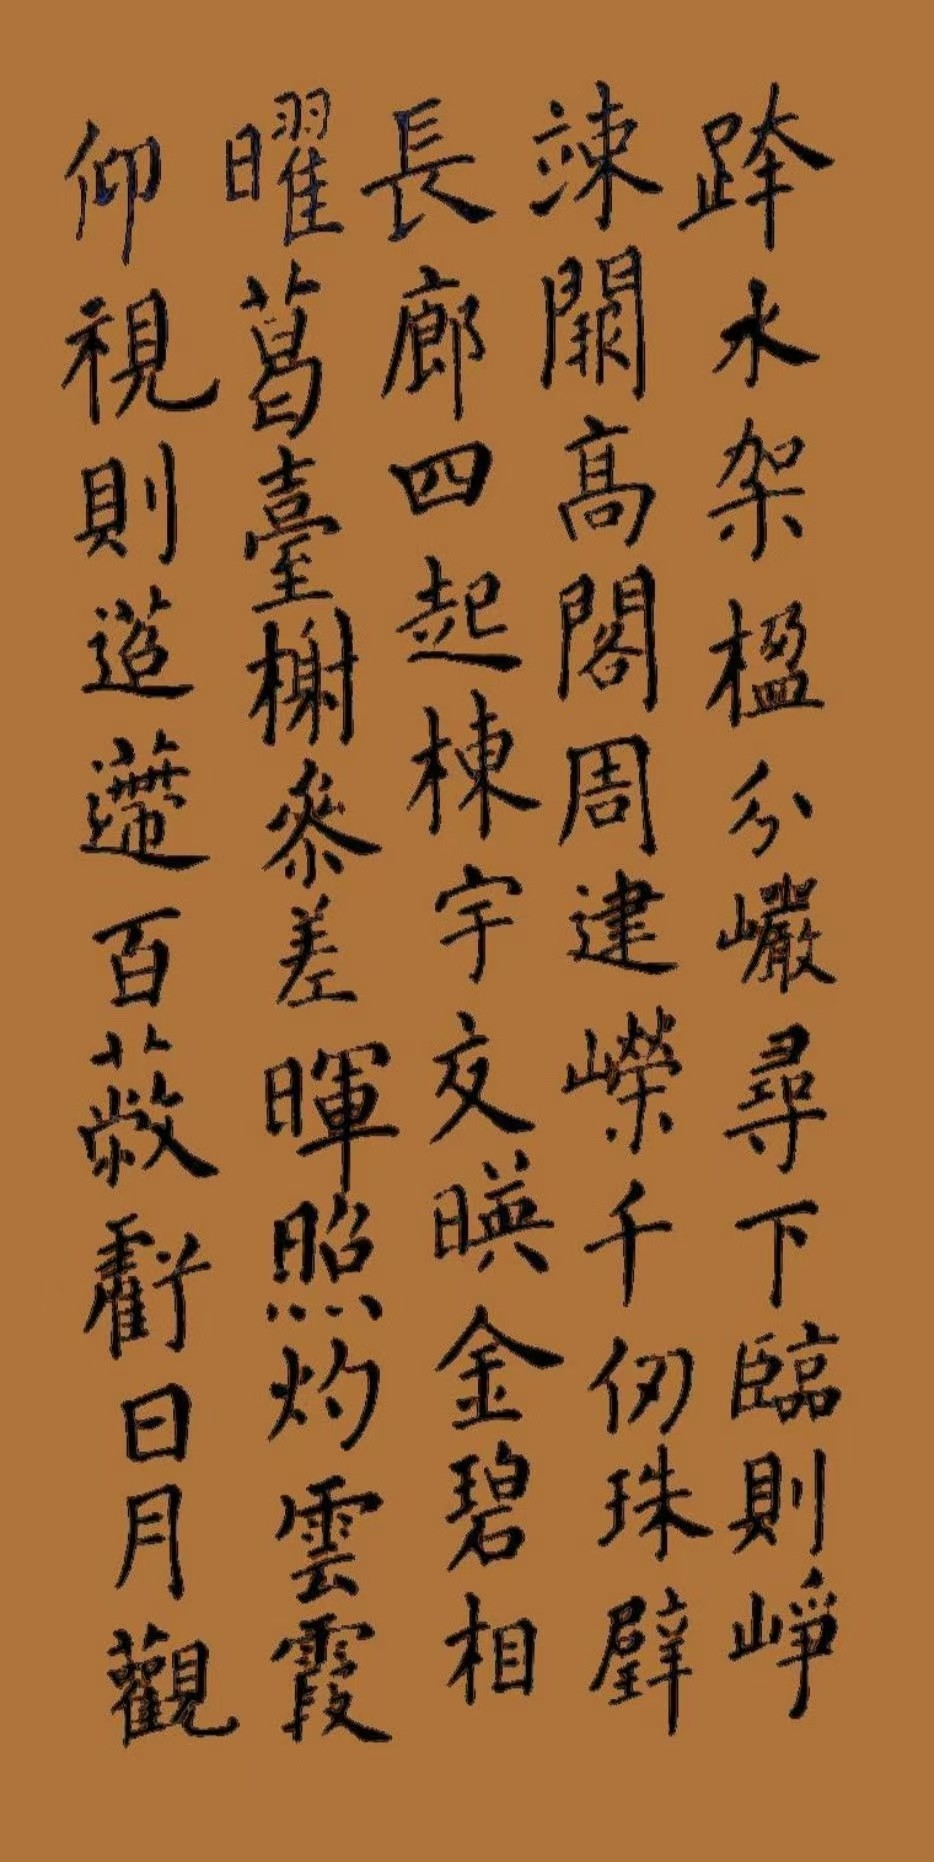 跨水架楹分巖尋下臨則崢
竦闕高閣周建嶸千仞珠璧
長廊四起棟宇交暎金碧相
曜葛臺榭參差暉照灼雲霞
仰視則迢遰百蔽虧日月觀